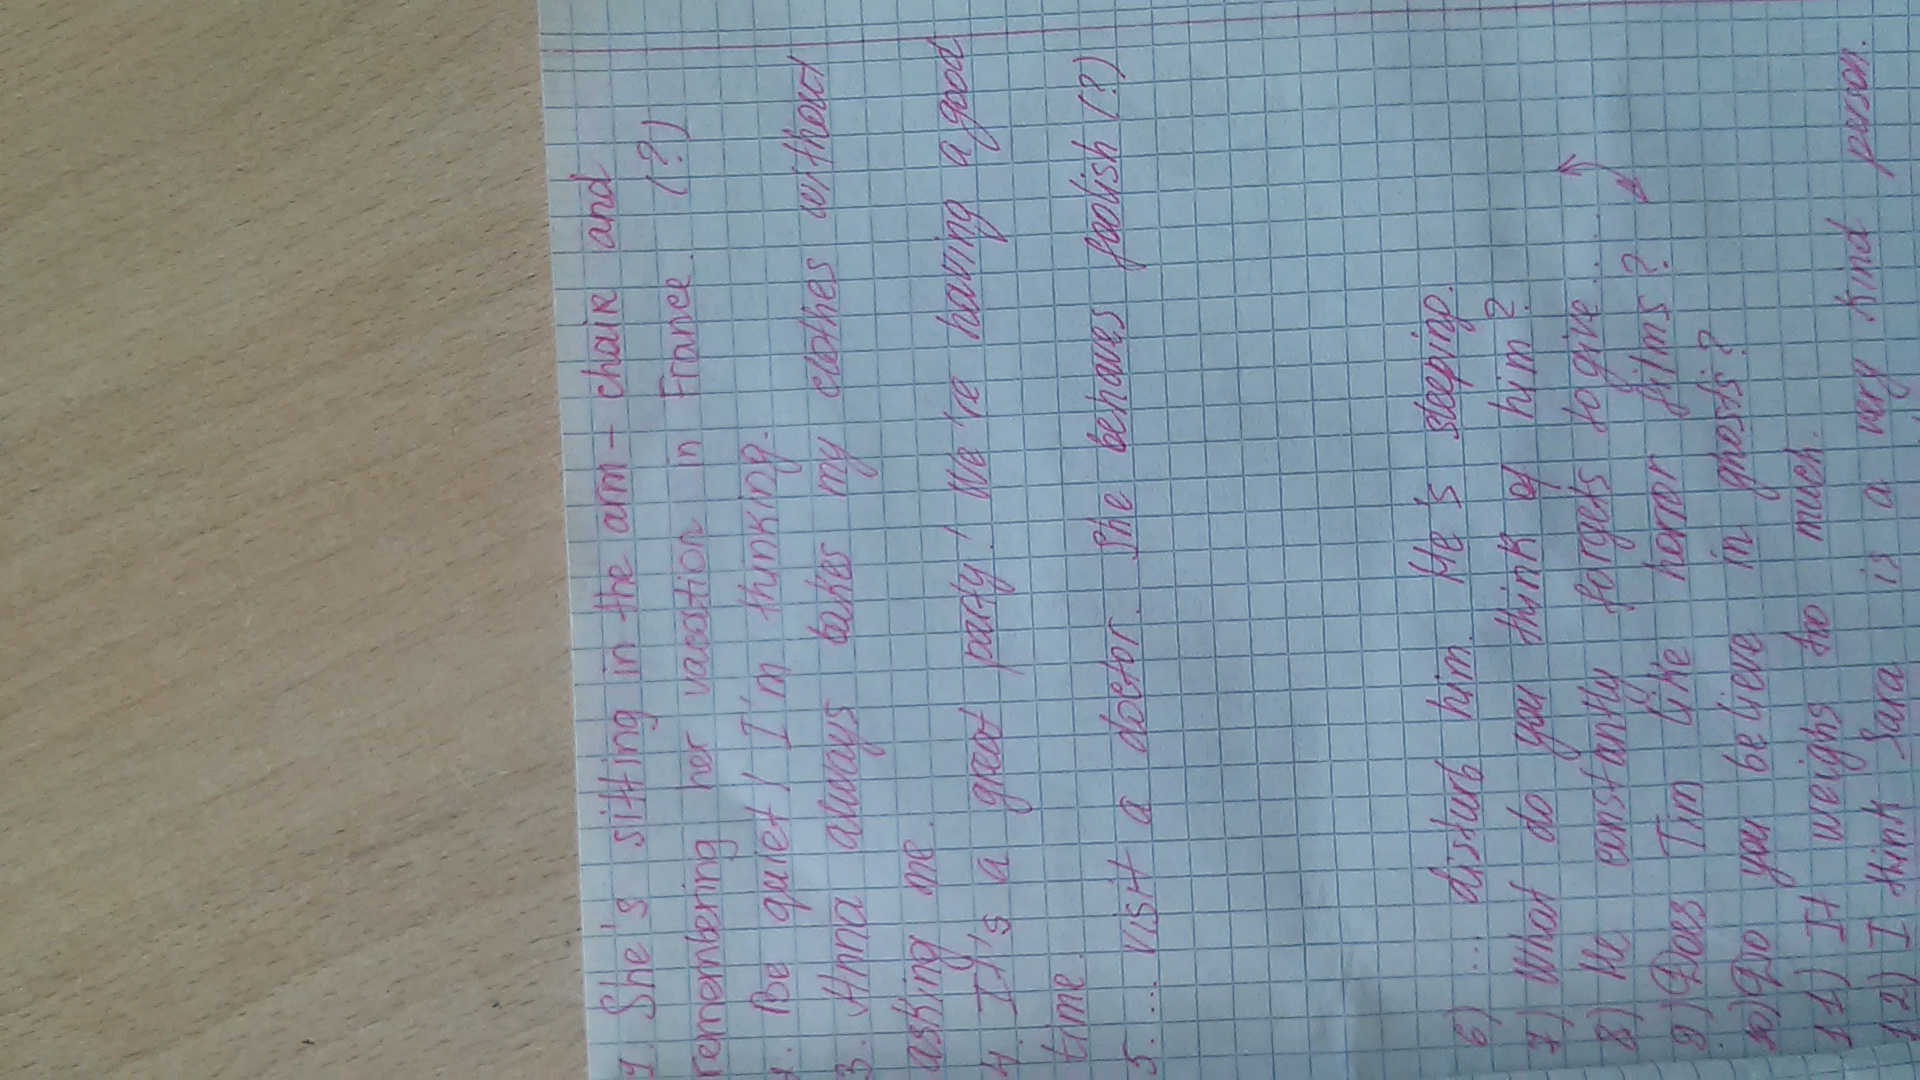 1. She's sitting in the arm-chair and
remembering her vacation in France. (?)
2. Be quiet! I'm thinking.
3. Anna always takes my clothes without
asking me.
4. It's a great party! We're having a good
time.
5. ... visit a doctor. She behaves foolish (?)
6) ... disturb him. He's sleeping.
7) What do you think of him?
8) He constantly forgets to give...
9) Does Tim like horror films?
10) Do you believe in ghosts?
11) It weighs too much.
12) I think Sara is a very kind person.